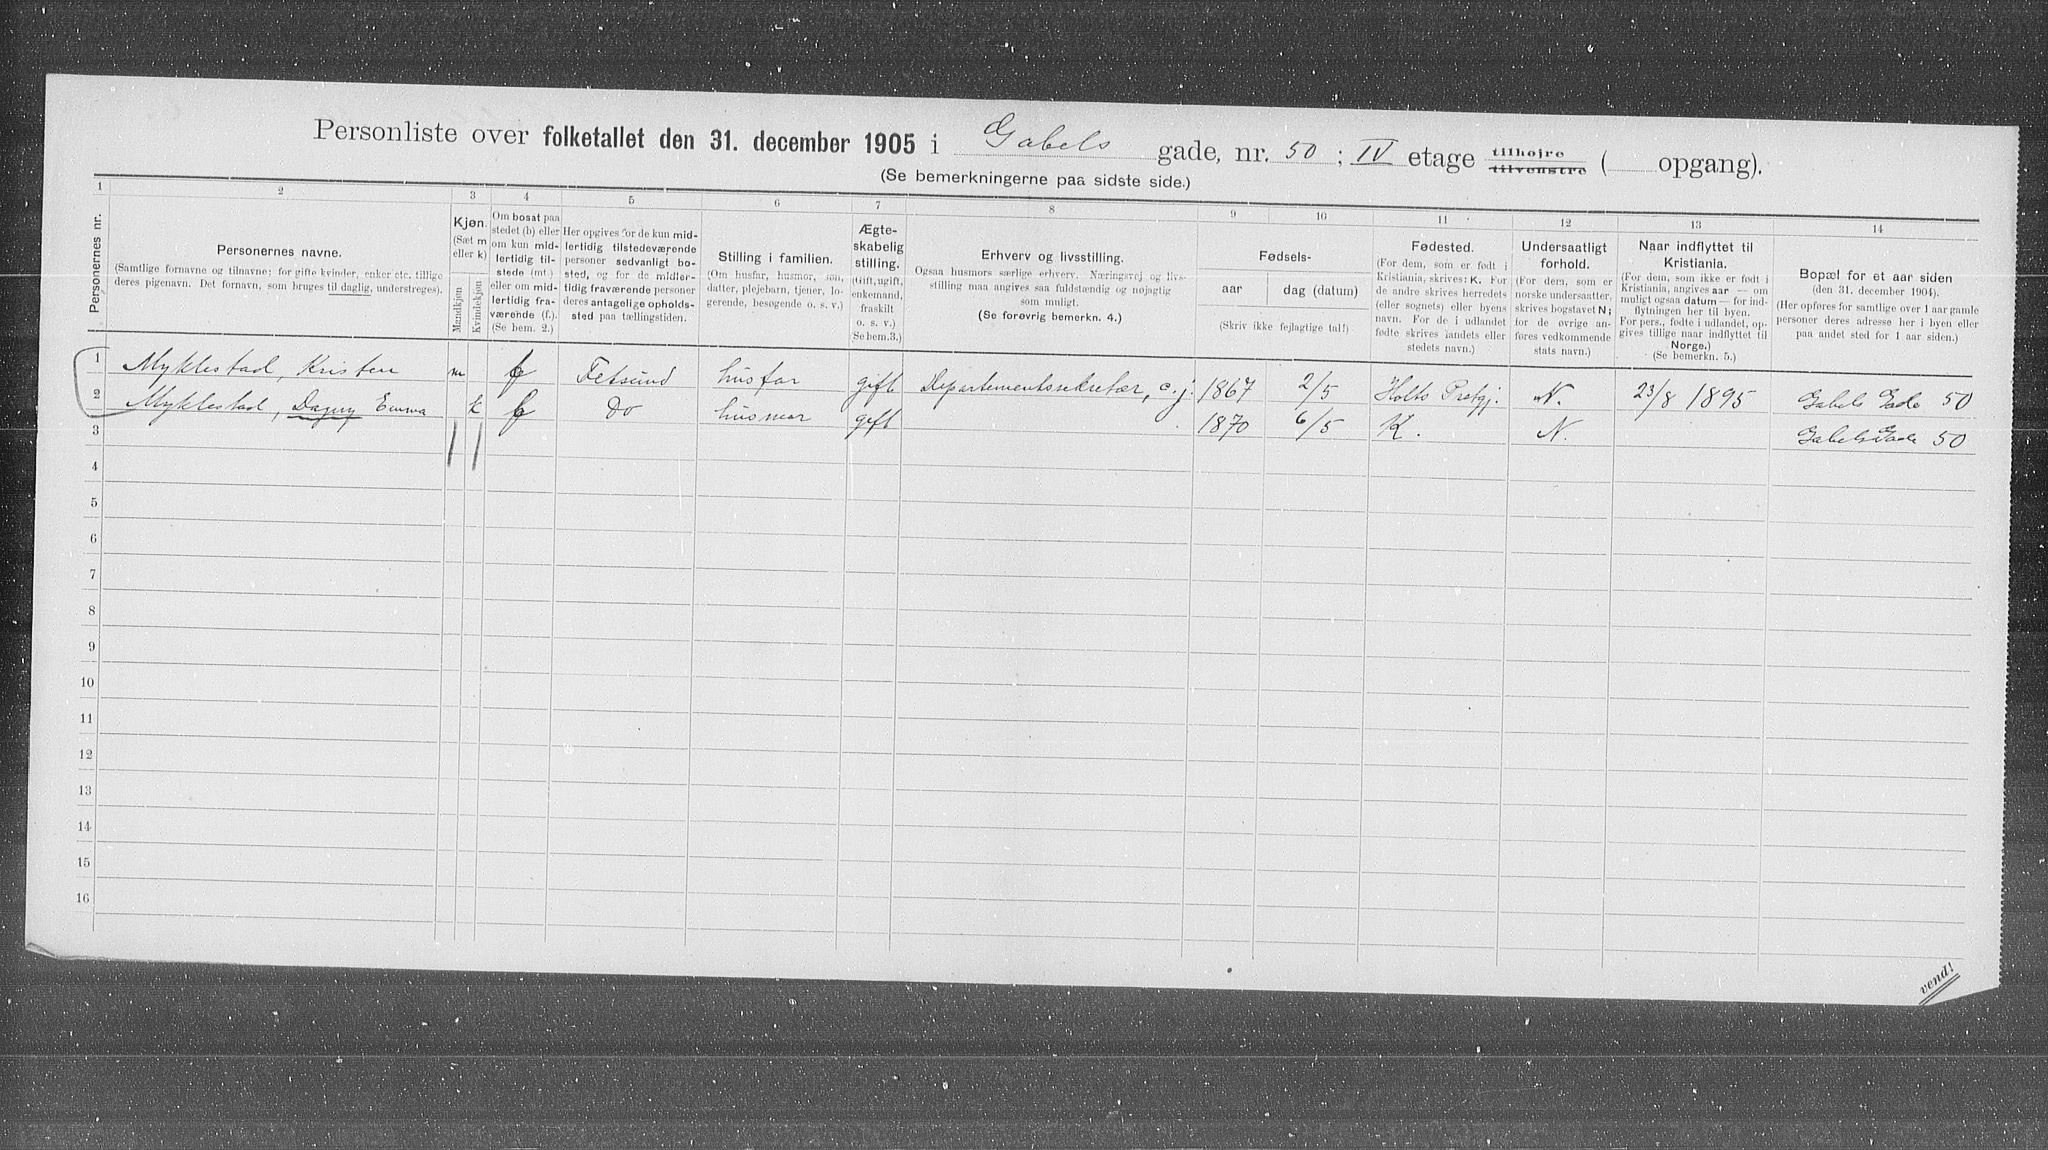 Personliste over folketallet den 31. december 1905 i Gabels gade, nr. 50; IV etage tilhøjre tilvenstre ( opgang).
(Se bemerkningerne paa sidste side.)
1 2 3 4 5 6 7 8 9 10 11 12 13 14
Personernes nr.
Personernes navne.
(Samtlige fornavne og tilnavne; for gifte kvinder, enker etc. tillige
deres pigenavn. Det fornavn, som bruges til daglig, understreges).
Kjøn.
(Sæt m
eller k)
Mandkjøn
Kvindekjøn
Om bosat paa
stedet (b) eller
om kun mid-
lertidig til-
stede (mt.)
eller om mid-
lertidig fra-
værende (f.).
(Se bem. 2.)
Her opgives for de kun mid-
lertidig tilstedeværende
personer sedvanlig bo-
sted, og for de midler-
tidig fraværende personer
deres antagelige opholds-
sted paa tællingstiden.
Stilling i familien.
(Om husfar, husmor, søn,
datter, plejebarn, tjener, lo-
gerende, besøgende o. s. v.)
Ægte-
skabelig
stilling.
(Gift, ugift,
enkemand,
fraskilt
o. s. v.)
(Se bem.3.)
Erhverv og livsstilling.
Ogsaa husmors særlige erhverv. Næringsvej og livs-
stilling maa angives saa fuldstændig og nøjagtig
som muligt.
(Se forøvrig bemerkn. 4.)
Fødsels-
aar
dag (datum)
(Skriv ikke fejlagtige tal!)
Fødested.
(For dem, som er født i
Kristiania, skrives: K. For
de andre skrives herredets
(eller sognets) eller byens
navn. For de i udlandet
fødte skrives landets eller
stedets navn.)
Undersaatligt
forhold.
(For dem, som er
norske undersaatter,
skrives bogstavet N;
for de øvrige an-
føres vedkommende
stats navn.)
Naar indflyttet til
Kristiania.
(For dem, som ikke er født i
Kristiania, angives aar — om
muligt ogsaa datum — for ind-
flytningen her til byen.
For pers., fødte i udlandet, op-
gives tillige naar indflyttet til
Norge.)
(Se bemerkn. 5.)
Bopæl for et aar siden
(den 31. december 1904).
(Her opføres for samtlige over 1 aar gamle
personer deres adresse her i byen eller
paa andet sted for 1 aar siden.)
1 Myklestad, Kristen m f Fetsund husfar gift Departementssekretær, c.j. 1867 2/5 Holts Prstgj. N. 23/8 1895 Gabels Gade 50
2 Myklestad, Dagny Emma k f Do husmor gift 1870 6/5 K. N. Gabels Gade 50
3
4
5
6
7
8
9
10
11
12
13
14
15
16
vend!